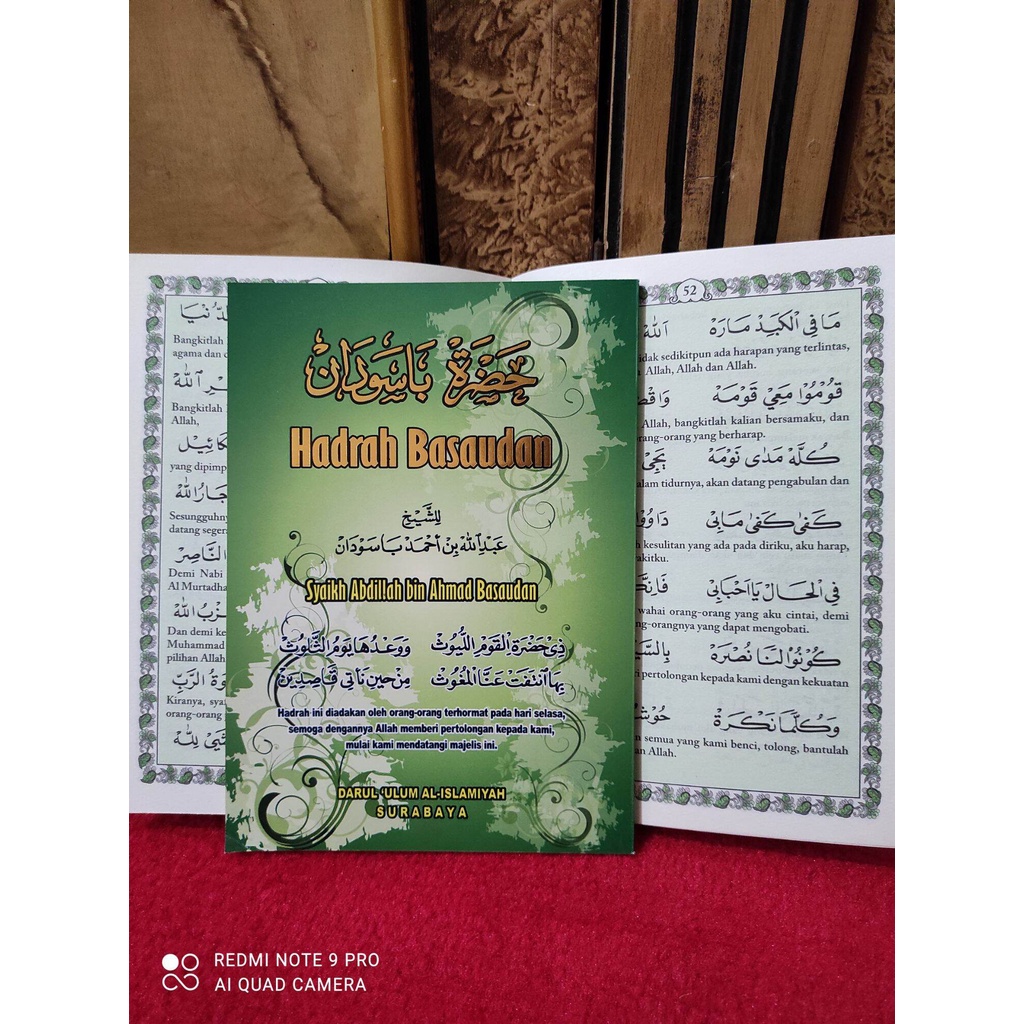 حَضْرَةْ بَاسَوْدَانْ
Hadrah Basaudan
لِلشَّيْخِ
عَبْدِ اللهِ بِنْ اَحْمَدْ بَاسَوْدَانْ
Syaikh Abdillah bin Ahmad Basaudan
ذِيْ حَضْرَةِ الْقَوْمِ اللُّيُوثْ وَوَعْدُهَا يَوْمُ الثَّلُوثْ
بِهَا انْتَفَتْ عَنَّا الْمُغُوثْ مِنْ حِينِ نَأْتِي قَاصِدِيْنْ
Hadrah ini diadakan oleh orang-orang terhormat pada hari selasa,
semoga dengannya Allah memberi pertolongan kepada kami,
mulai kami mendatangi majelis ini.
DARUL 'ULUM AL-ISLAMIYAH
SURABAYA
Bangkitlah
agama dan
Bangkitlah
Allah,
yang dipimp
Sesungguhny
datang seger
النَّاصِرْ
Demi Nabi
Al Murtadha
Dan demi ke
Muhammad
pilihan Allah
Kiranya, sya
orang-orang
52
مَا فِي الْكَبِدْ مَارَهْ
dak sedikitpun ada harapan yang terlintas,
Allah, Allah dan Allah.
قُوْمُوْا مَعِيْ قَوْمَهْ
Allah, bangkitlah kalian bersamaku, dan
rang-orang yang berharap.
كُلَّهْ مَدَى نَوْمَهْ
alam tidurnya, akan datang pengabulan dan
كَفَى كَفَى مَابِيْ
kesulitan yang ada pada diriku, aku harap,
akitku.
فِي الْحَالْ يَا اَحْبَابِيْ
wahai orang-orang yang aku cintai, demi
ng-orangnya yang dapat mengobati.
كُوْنُوْا لَنَا نُصْرَهْ
pertolongan kepada kami dengan kekuatan
وَكُلَّمَا نَكْرَهْ
n semua yang kami benci, tolong, bantulah
an Allah.
REDMI NOTE 9 PRO
AI QUAD CAMERA